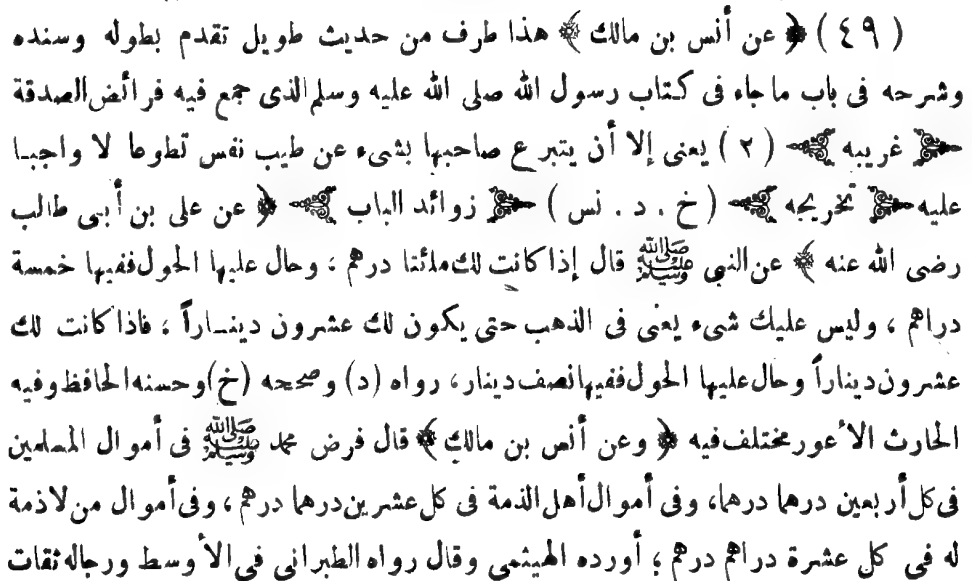 (٤٩) ﴿ عن أنس بن مالك ﴾ هذا طرف من حديث طويل تقدم بطوله وسنده
وشرحه فى باب ما جاء فى كتاب رسول الله صلى الله عليه وسلم الذى جمع فيه فرائض الصدقة
غريبه (٢) يعنى إلا أن يتبرع صاحبها بشىء عن طيب نفس تطوعا لا واجبا
عليه تخريجه (خ . د . نس) زوائد الباب ﴿ عن على بن أبى طالب
رضى الله عنه ﴾ عن النبى ﷺ قال إذا كانت لك مائتا درهم ، وحال عليها الحول ففيها خمسة
دراهم ، وليس عليك شىء يعنى فى الذهب حتى يكون لك عشرون ديناراً ، فاذا كانت لك
عشرون ديناراً وحال عليها الحول ففيها نصف دينار، رواه (د) وصححه (خ) وحسنه الحافظ وفيه
الحارث الأعور مختلف فيه ﴿ وعن أنس بن مالك ﴾ قال فرض محمد ﷺ فى أموال المسلمين
فى كل أربعين درهما درهما، وفى أموال أهل الذمة فى كل عشرين درهما درهم ، وفى أموال من لا ذمة
له فى كل عشرة دراهم درهم ؛ أورده الهيثمى وقال رواه الطبرانى فى الأوسط ورجاله ثقات